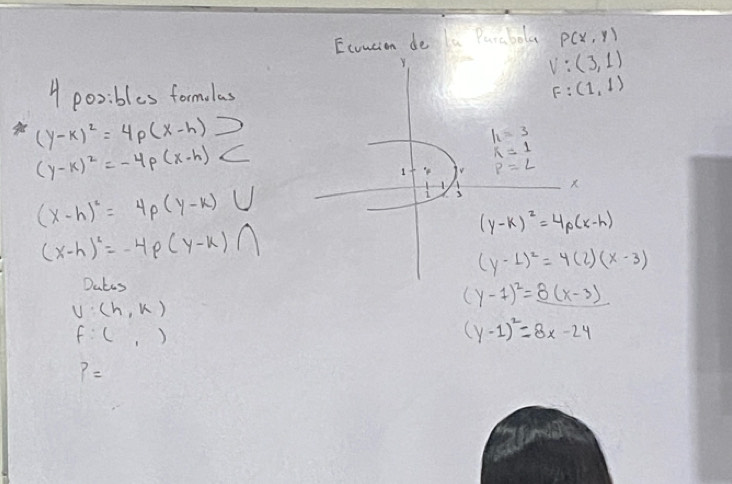 Ecuacion de la Parabola P(x, y)
V:(3,1)
F:(1,1)
4 posibles formulas
* (y-k)² = 4p(x-h) ⊃
(y-k)² = -4p(x-h) ⊂
(x-h)² = 4p(y-k) ∪
(x-h)² = -4p(y-k) ∩
Datos
V:(h, k)
f:( , )
P=
y
1
F
V
1
3
x
h=3
k=1
P=2
(y-k)² = 4p(x-h)
(y-1)² = 4(2)(x-3)
(y-1)² = 8(x-3)
(y-1)² = 8x-24